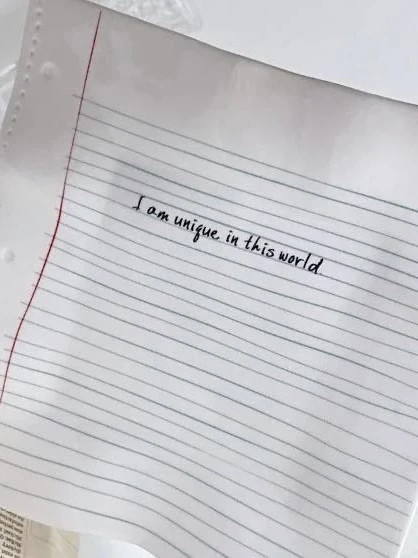 I am unique in this world